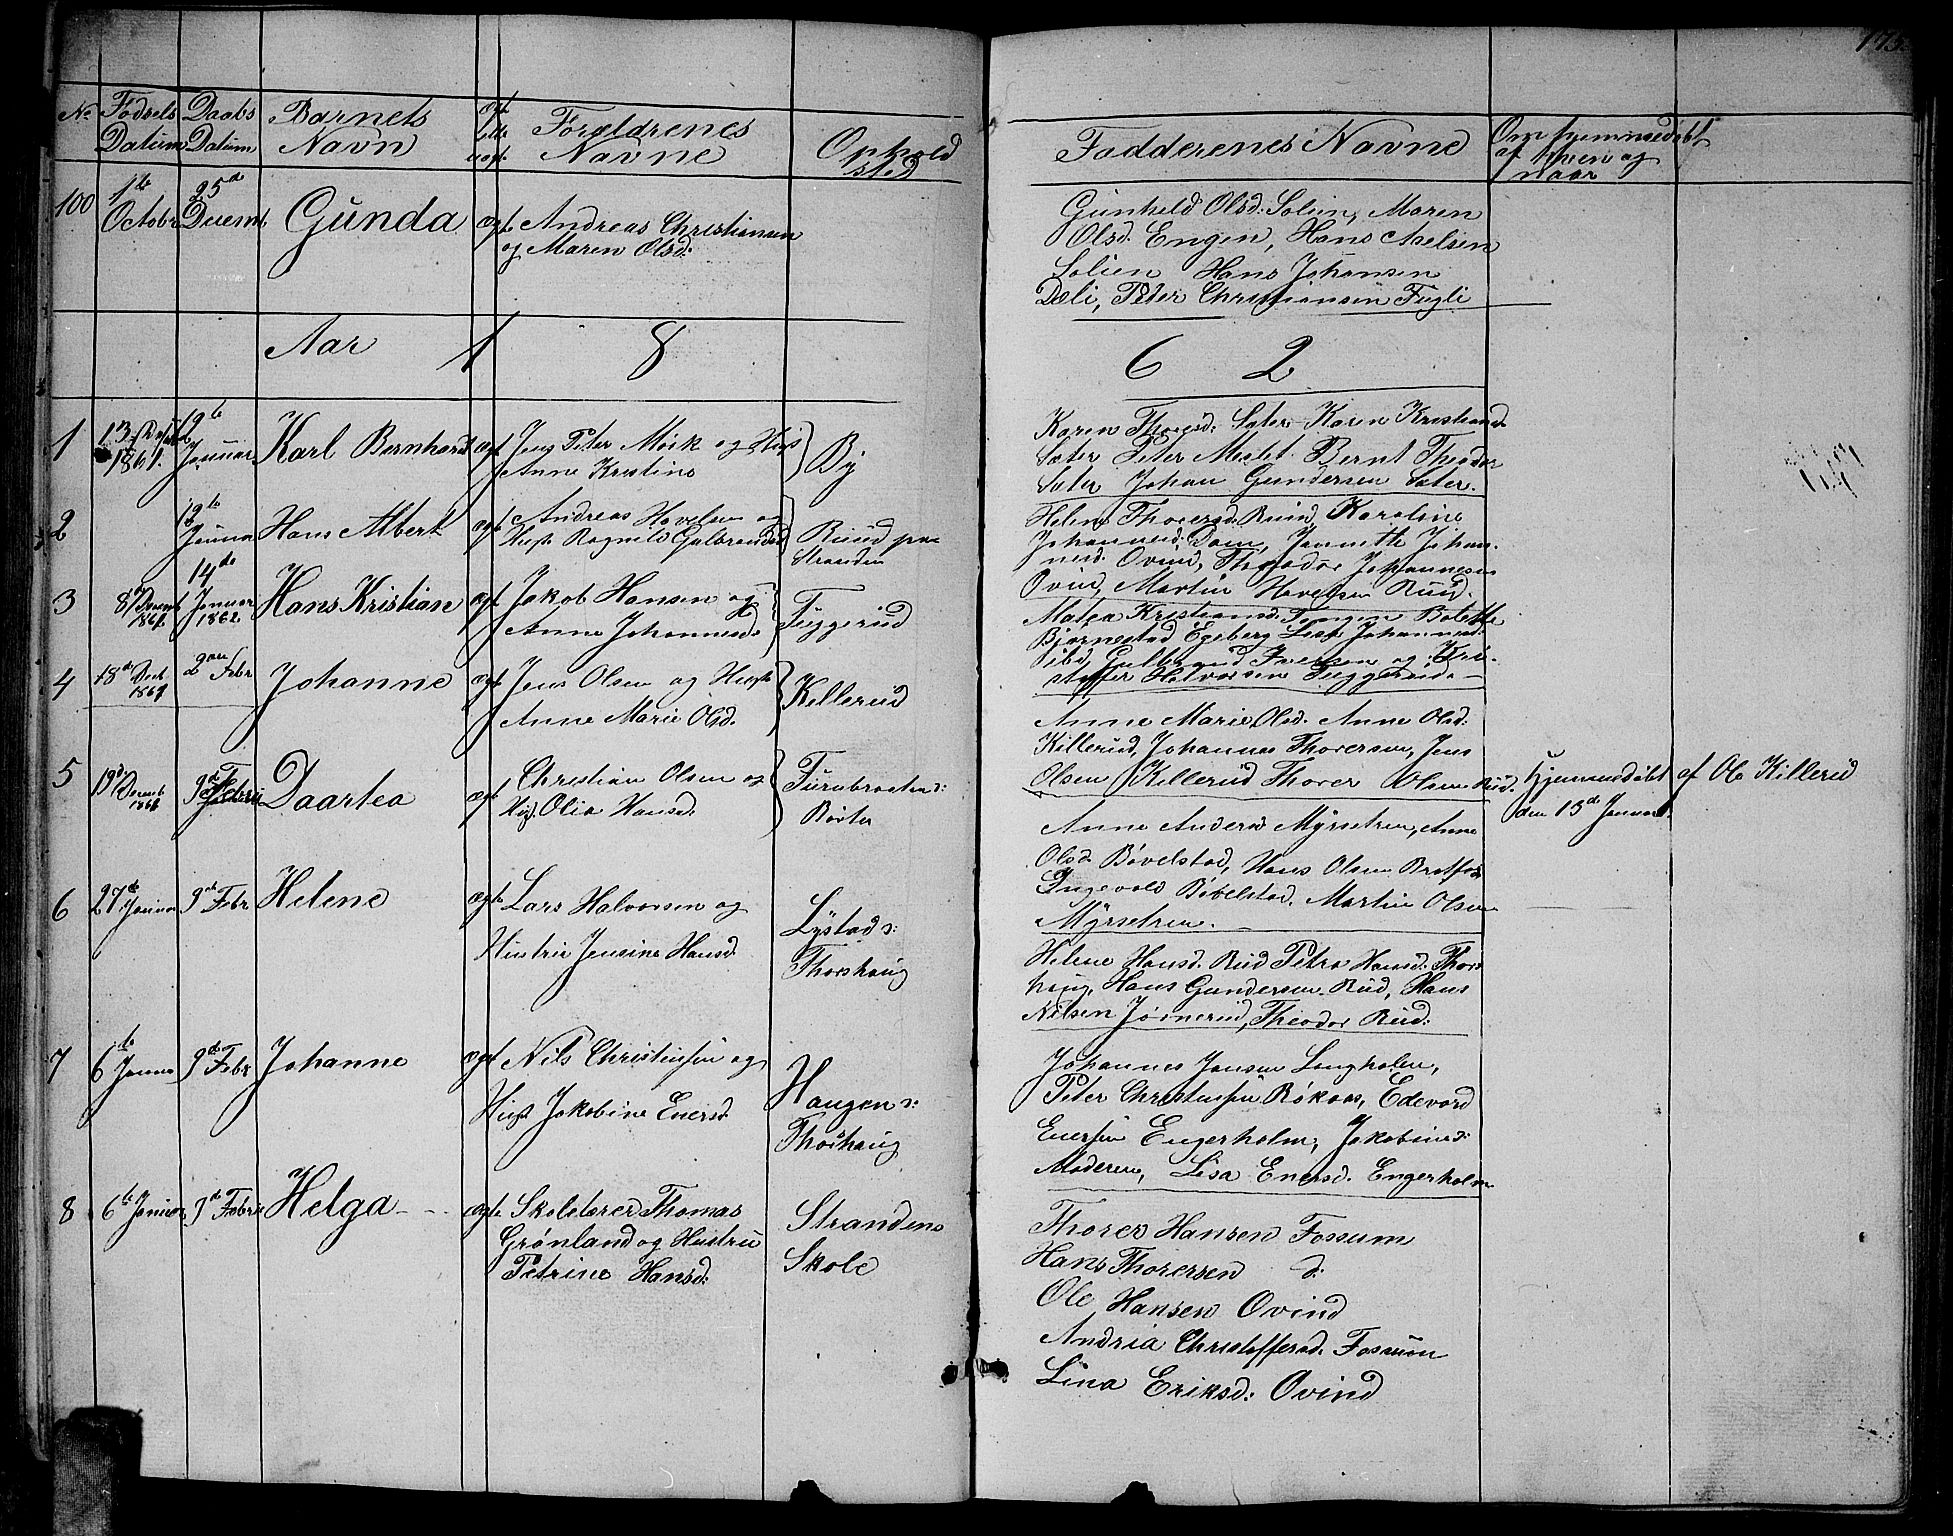 175
No Fødsels Datum
Daabs Datum
Barnets Navn
Forældrenes Navne
Ophold sted
Fadderenes Navne
Om hjemmedøbt
af hven og
naar
100
1te Octobr
25d Decemb.
Gunda
Ægt.
Andreas Christiansen
og Maren Olsd:
Gunhild Olsd. Solien, Maren
Olsd. Engen, Hans Nielsen
Solien Hans Johansen
Dæli, Peter Christiansen Fugli
Aar 1 8 6 2
1
13 1861.
19de Januar
Karl Bernhard
Ægt
Jens Peter Mørk og Hus
Anne Kristine
By
Karen Thoresd: Sæter Karen Kristiansd
Sæter Peter Meslet. Bernt Theodor
Sæter Johan Gundersen Sæter.
2
19de Janua
Hans Albert
Ægt
Andreas Hovelsen og
Hust Ragnild Gulbrandsd
Ruud paa
Stranden
Helene Thoresd. Ruud Karoline
Johannesd. Dam, Jannette Johan-
nesd. Ovind, Theodor Johannesen
Ovind, Martin Hovelsen Ruud.
3
8de Decemb 1861.
14de Januar 1862
Hans Kristian
Ægt
Jakob Hansen og
Anne Johannesd.
Fuggerud
Matea Kristiansd. Bolette
Bjørnestad Egeberg Lise Johannesd.
Gulbrand Iversen og Kri-
stoffer Halvorsen Fuggerud.
4
18de Decb 1861
2den Febr
Johanne
Ægt
Jens Olsen og Hust
Anne Marie Olsd.
Killerud
Anne Marie Olsd. Anne Olsd.
Killerud, Johannes Thoresen, Jens
Olsen Killerud Thorer Olsen Rud.
5
19de Decemb 1861
9de Febru
Daartea
Ægt
Christian Olsen og
Hus. Olia Hansd.
Furubraaten:
Børter
Hjemmedøbt af Ole Killerud
den 15de Januar.
Anne Andersd Myrsetren, Anne
Olsd. Bøvelstad, Hans Olsen
Ingevald Bøvelstad. Martin Olsen
Myrsetren.
6
27de Januar
9de Febr
Helene
Ægte
Lars Halvorsen og
Hustrue Jensine Hansd.
Lystad:
Thorshaug
Helene Hansd. Rud Petra Hansd. Thors
haug, Hans Gundersen Rud, Hans
Nilsen Jørnerud, Theodor Rud.
7
6te Janua
9de Febr
Johanne
Ægt
Nils Christensen og
Hust Jakobine Enersd.
Haugen:
Thorshaug
Johannes Jansen Langholen,
Peter Christensen Røkaas, Edevard
Enersen Engerholm, Jakobine:
Moderen, Lisa Enersd. Engerholm
8
6te Januar
9de Febru
Helga
Ægte
Skolelærer Thomas
Grønland og Hustru
Petrine Hansd.
Strandens
Skole
Thorer Hansen Fossum
Hans Thorersen d:
Ole Hansen Ovind
Andria Christoffersd. Fossum
Lina Eriksd: Ovind